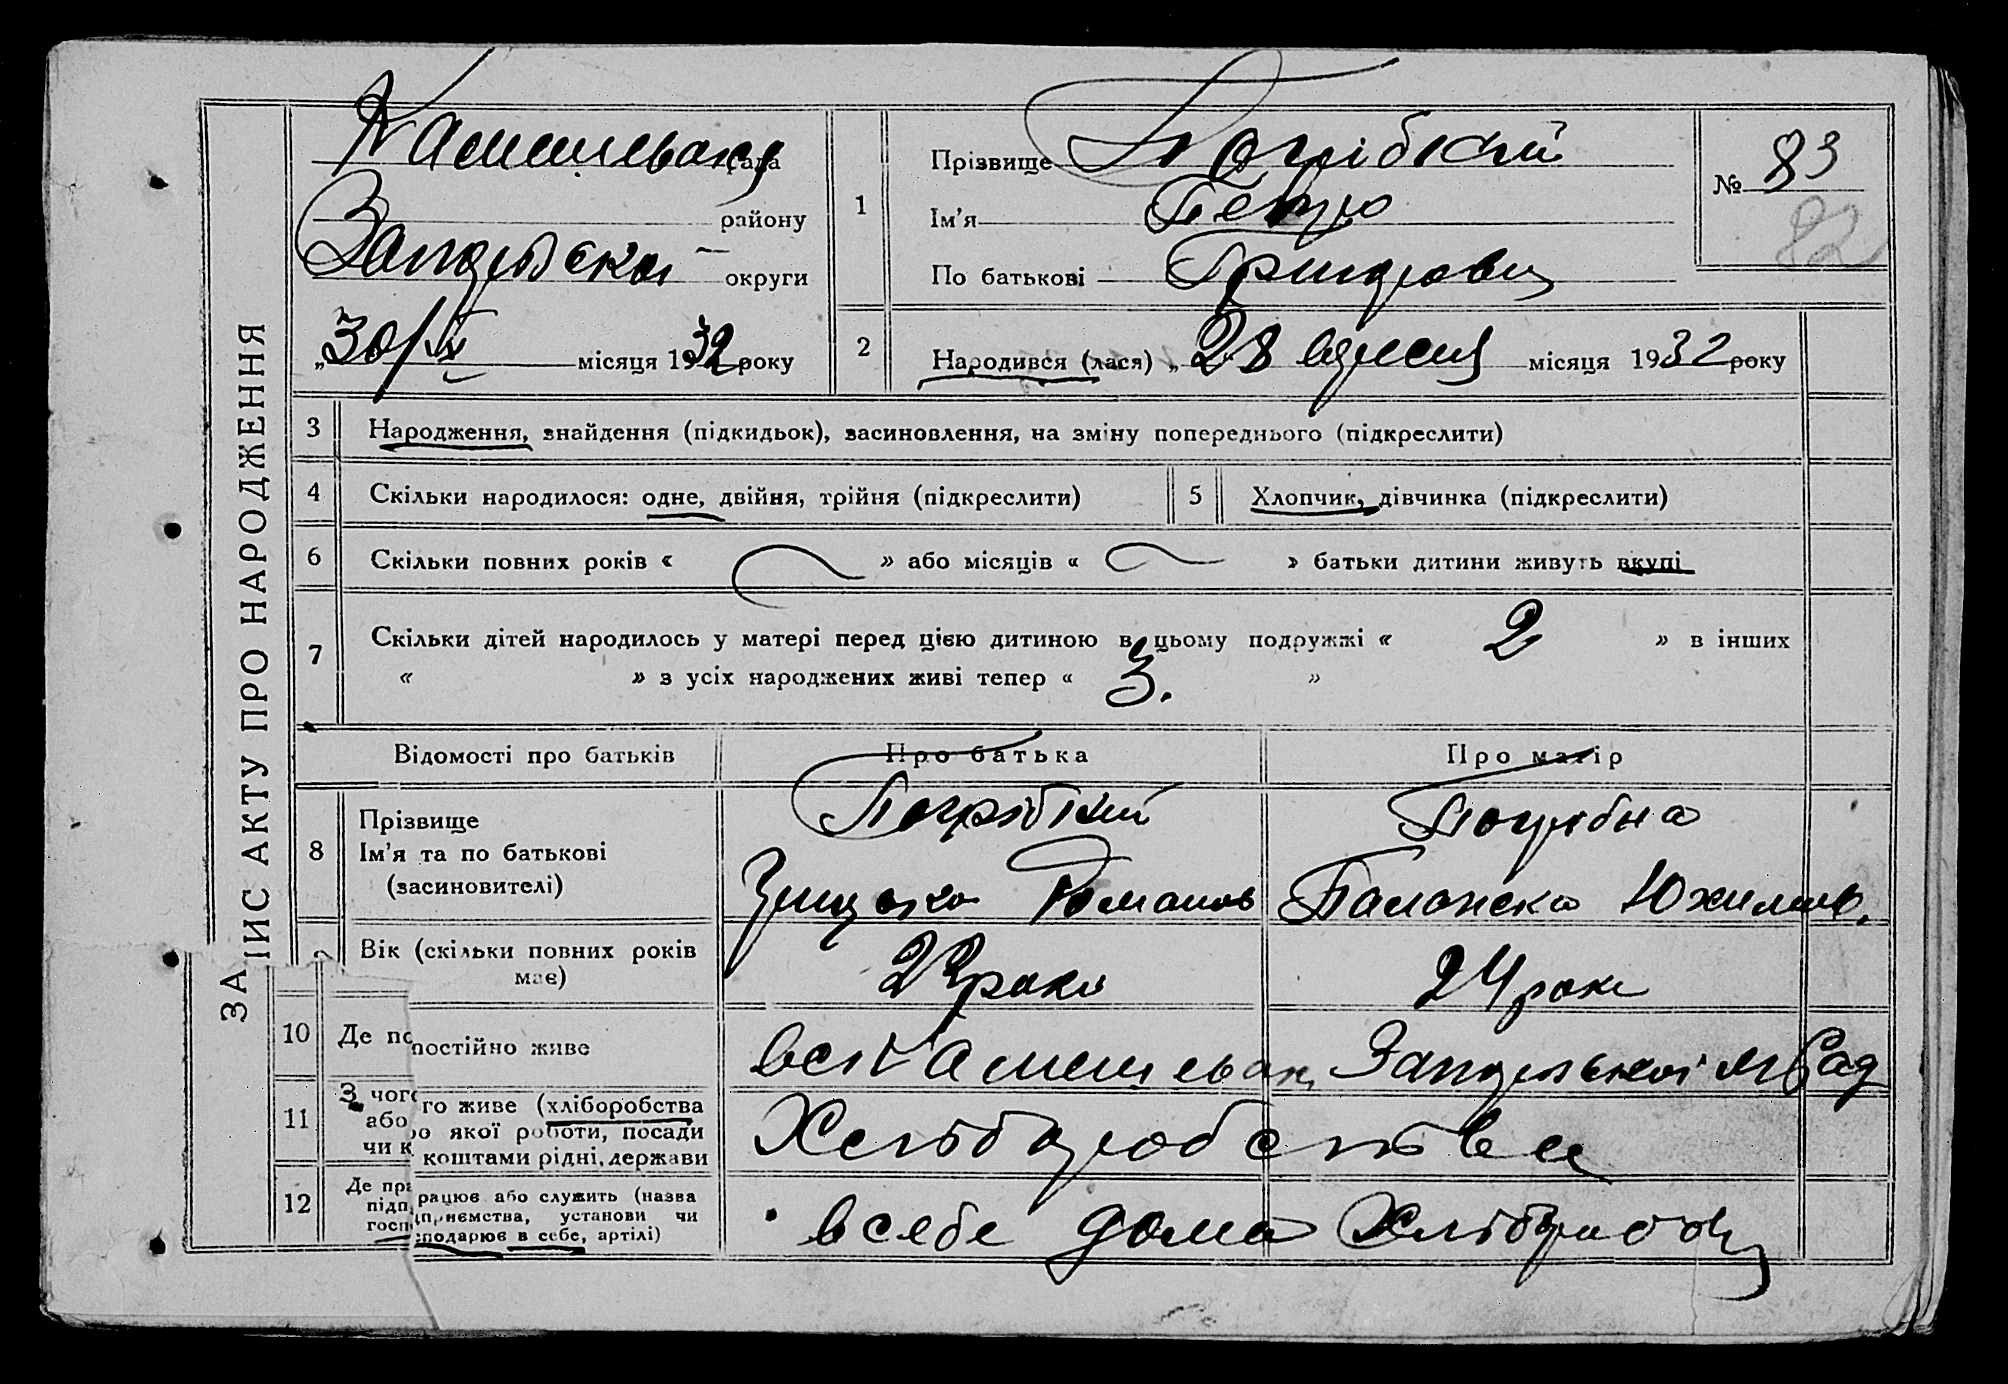 ЗАПИС АКТУ ПРО НАРОДЖЕННЯ
рада
району
округи
„30/IX місяця 1932 року
1
Прізвище Погрібний
Ім'я Петро
По батькові Григорович
№ 83
82
2
Народився (лася) „28 вересня місяця 1932 року
3 Народження, знайдення (підкидьок), засиновлення, на зміну попереднього (підкреслити)
4 Скільки народилося: одне, двійня, трійня (підкреслити)
5 Хлопчик, дівчинка (підкреслити)
6 Скільки повних років « » або місяців « » батьки дитини живуть вкупі
7 Скільки дітей народилось у матері перед цією дитиною в цьому подружжі « 2 » в інших
« » з усіх народжених живі тепер « 3. »
Відомості про батьків Про батька Про матір
8 Прізвище
Ім'я та по батькові
(засиновителі)
Погрібний Погрібна
Романов
Вік (скільки повних років
має)
23 роки 24 роки
10 Де постійно живе
11 З чого живе (хліборобства
або якої роботи, посади
чи коштами рідні, держави
Хліборобства
12 Де працює або служить (назва
підприємства, установи чи
господарює в себе, артілі)
в себе дома